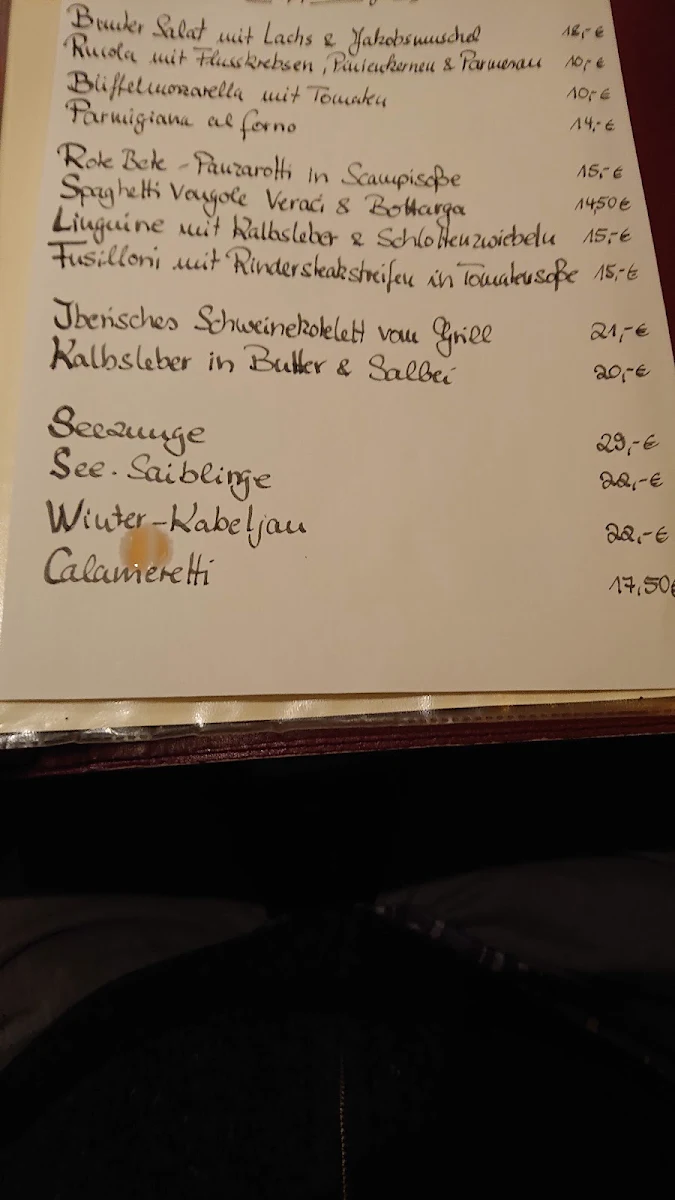 Bunter Salat mit Lachs & Jakobsmuschel 12,-€
Rucola mit Flusskrebsen, Pinienkernen & Parmesan 10,-€
Büffelmozzarella mit Tomaten 10,-€
Parmigiana al forno 14,-€
Rote Bete - Panzarotti in Scampisoße 15,-€
Spaghetti Vongole Veraci & Bottarga 1450€
Linguine mit Kalbsleber & Schlottenzwiebeln 15,-€
Fusilloni mit Rindersteakstreifen in Tomatensoße 15,-€
Iberisches Schweinekotelett vom Grill 21,-€
Kalbsleber in Butter & Salbei 20,-€
Seezunge 29,-€
See-Saiblinge 22,-€
Winter-Kabeljau 22,-€
Calameretti 17,50€